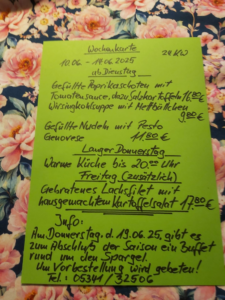 Wochenkarte 25 KW
10.06. - 19.06.2025
ab Dienstag
Gefüllte Paprikaschoten mit
Tomatensauce, dazu Salzkartoffeln 16,80€
Wirsingkohlsuppe mit Mettbällchen
9,80€
Gefüllte Nudeln mit Pesto
Genovese 11,80€
Langer Donnerstag
Warme Küche bis 20:00 Uhr
Freitag (zusätzlich)
Gebratenes Lachsfilet mit
hausgemachten Kartoffelsalat 17,80€
Info:
Am Donnerstag, d. 19.06.25, gibt es
zum Abschluß der Saison ein Buffet
rund um den Spargel.
Um Vorbestellung wird gebeten!
Tel.: 05341/32506